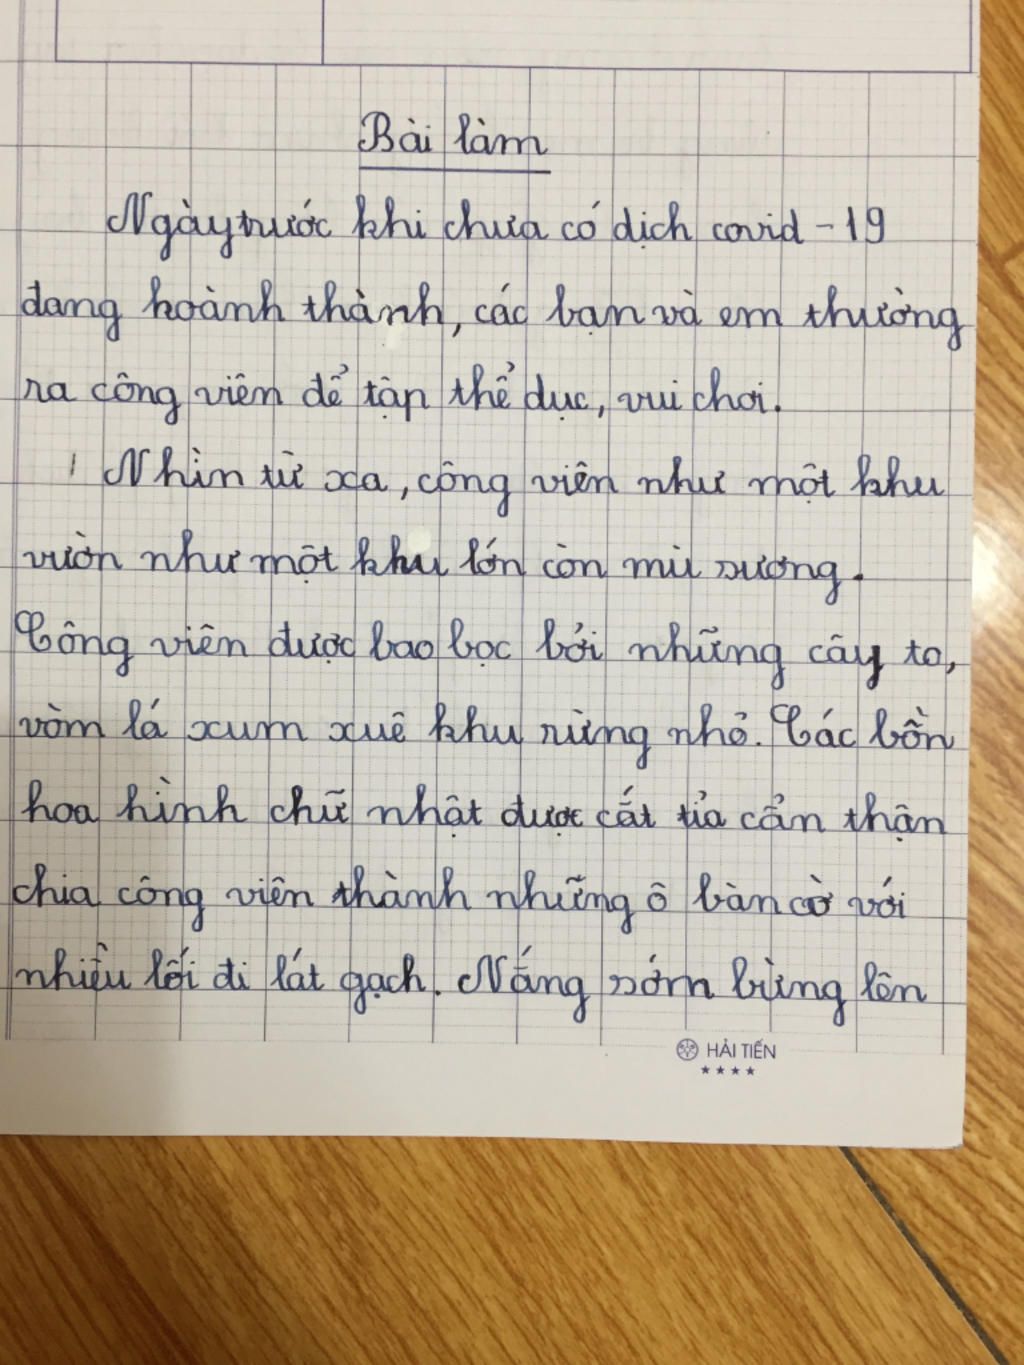 Bài làm
Ngày trước khi chưa có dịch covid - 19
đang hoành thành, các bạn và em thường
ra công viên để tập thể dục, vui chơi.
Nhìn từ xa, công viên như một khu
vườn như một khu lớn còn mù sương.
Công viên được bao bọc bởi những cây to,
vòm lá xum xuê khu rừng nhỏ. Các bồn
hoa hình chữ nhật được cắt tỉa cẩn thận
chia công viên thành những ô bàn cờ với
nhiều lối đi lát gạch. Nắng sớm bừng lên
HẢI TIẾN